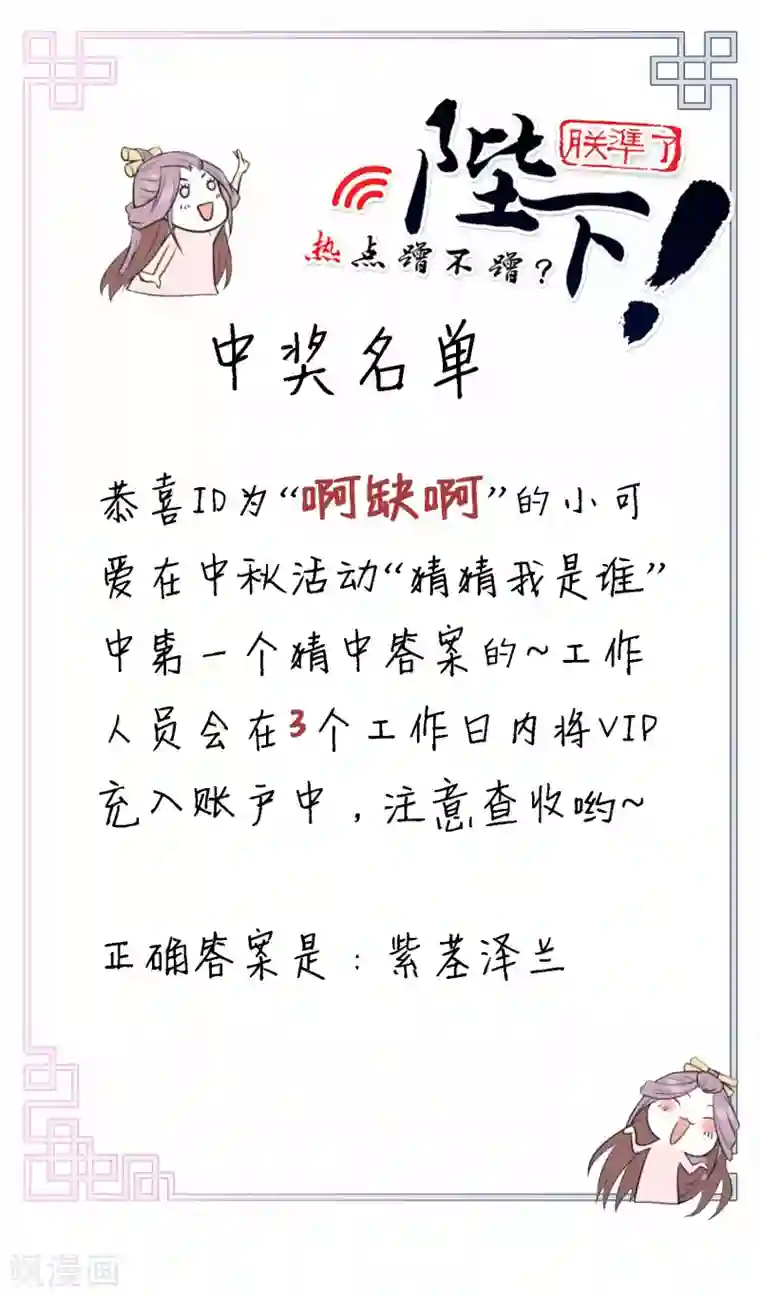 陛下!
朕準了
热点蹭不蹭?
中奖名单
恭喜ID为“啊缺啊”的小可
爱在中秋活动“猜猜我是谁”
中第一个猜中答案的~工作
人员会在3个工作日内将VIP
充入账户中，注意查收哟~
正确答案是：紫茎泽兰
飒漫画